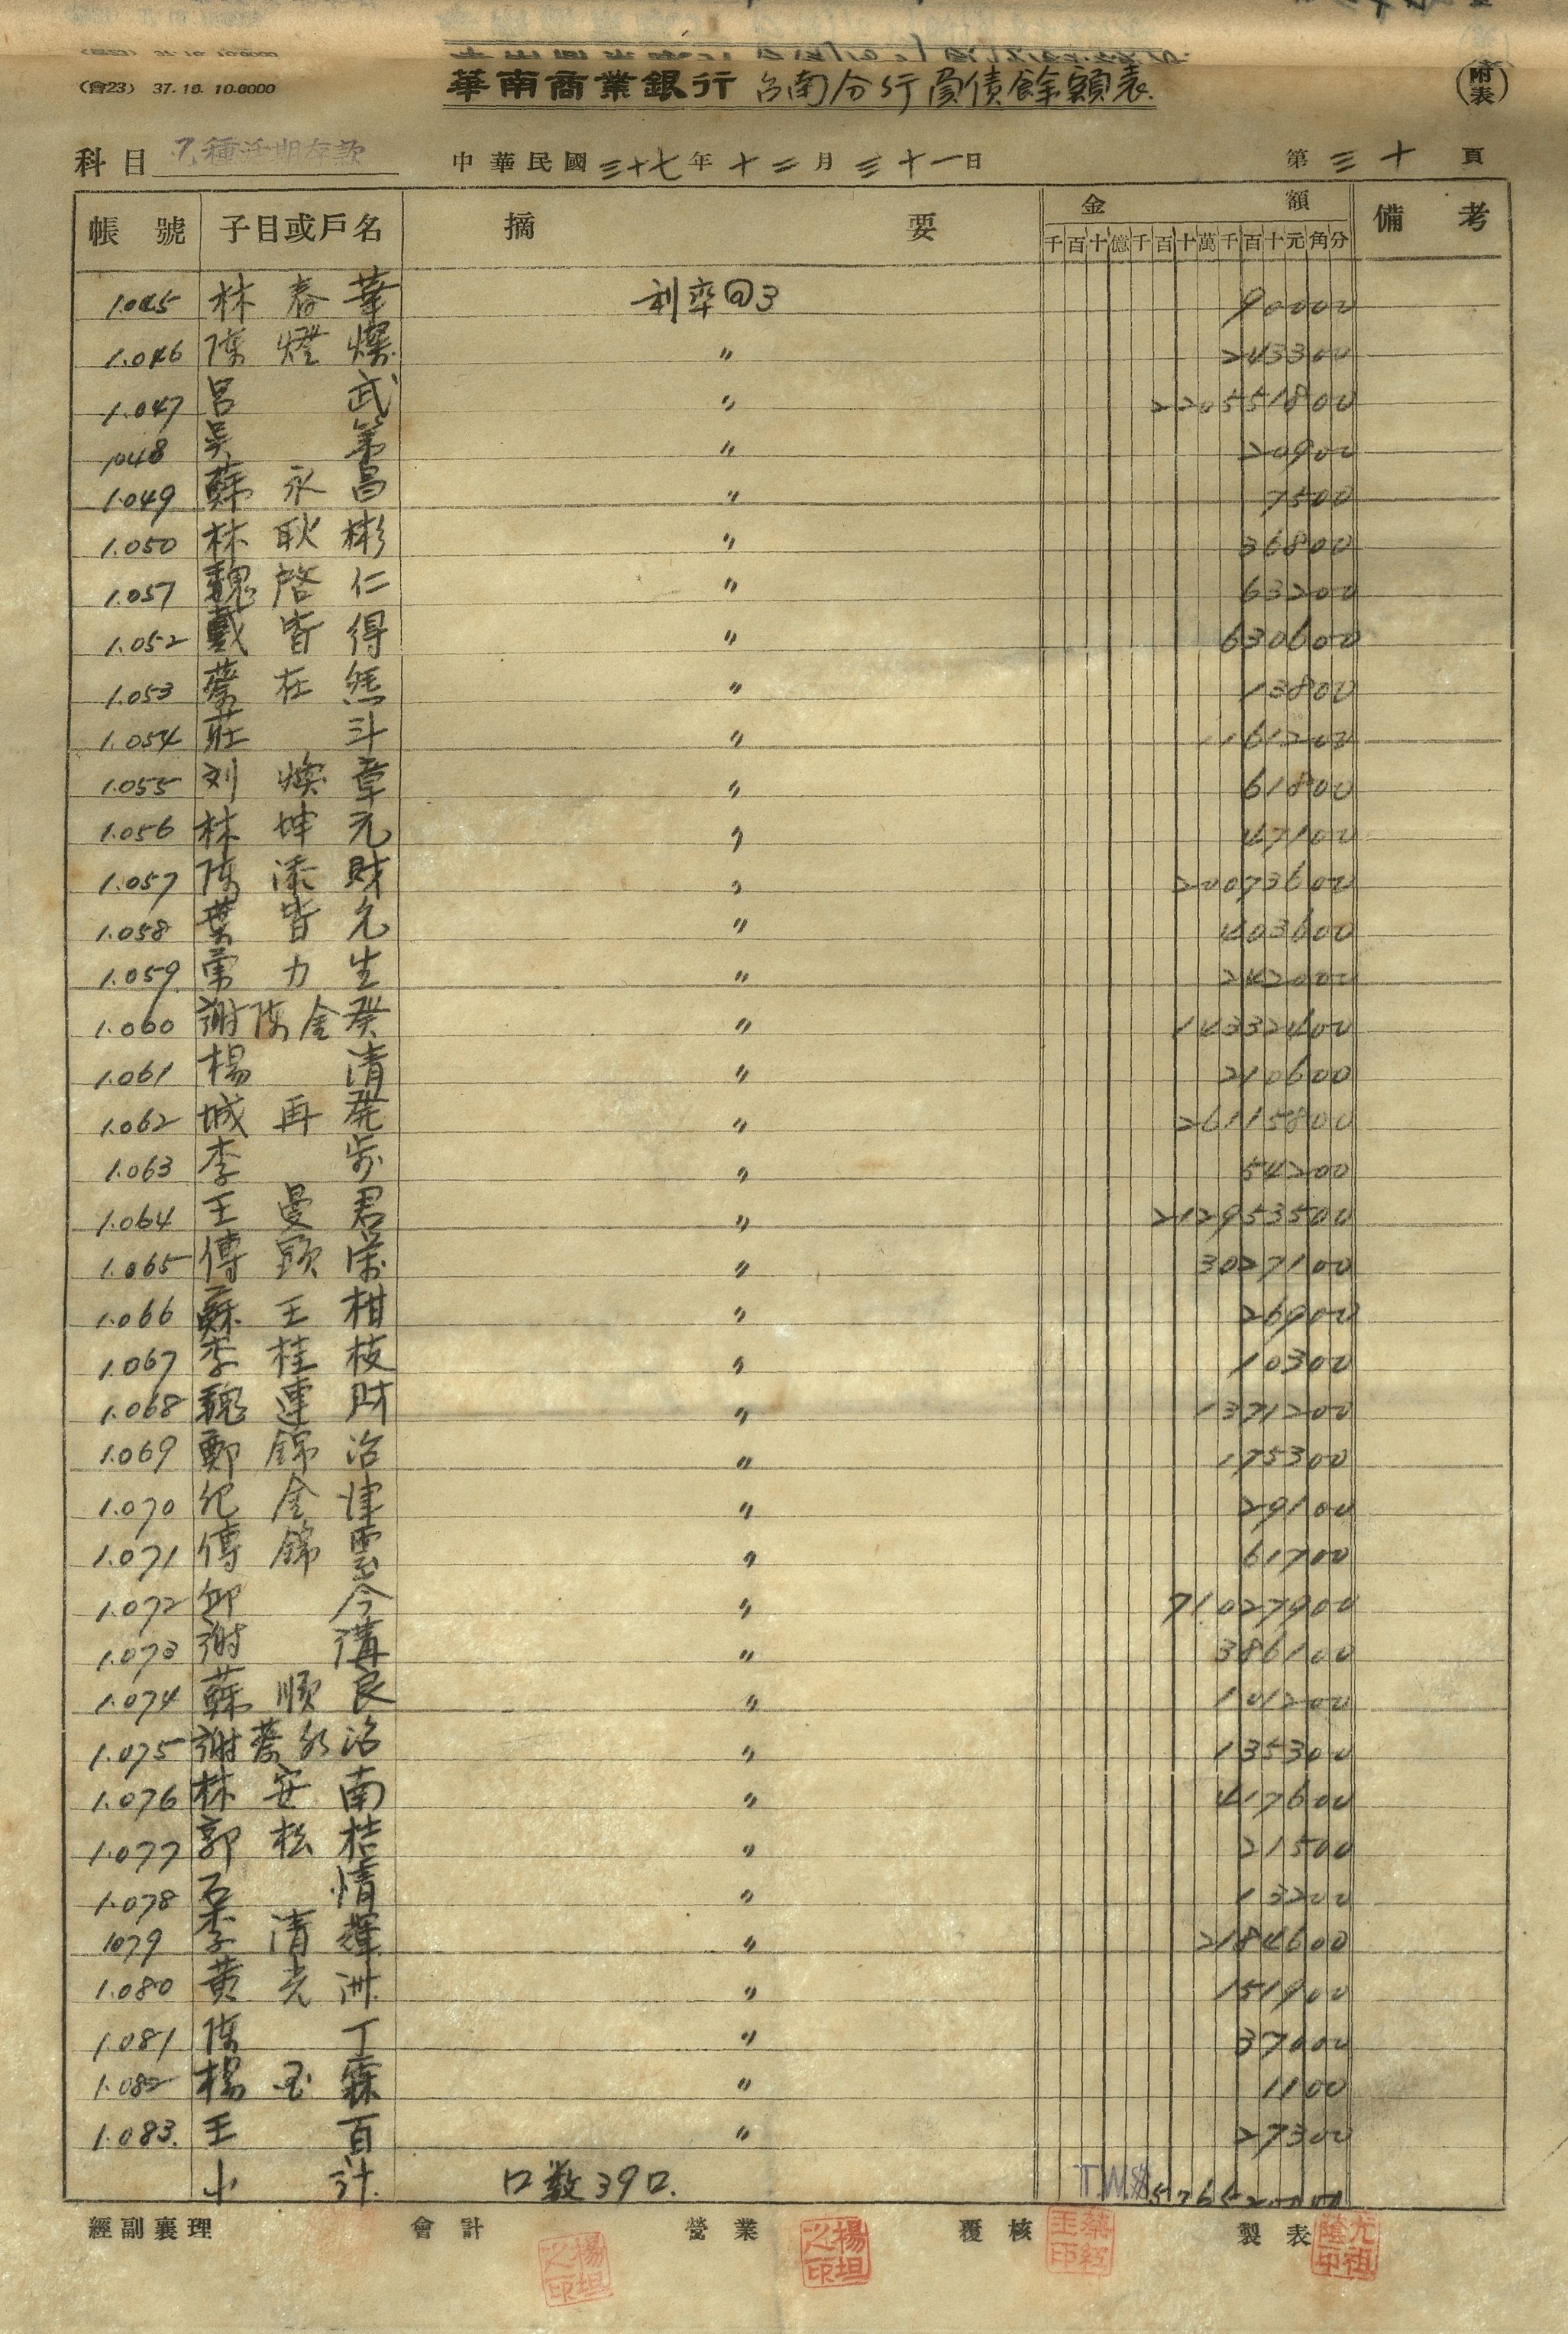 (會23) 37.10.10.0000
華南商業銀行 台南分行負債餘額表
(附表)
科目 乙種活期存款 中華民國三十七年十二月三十一日 第三十頁
帳號 子目或戶名 摘要 金額 備考
千百十億千百十萬千百十元角分
1.045 林春華 利率@3 90000
1.046 陳燈燦 〃 243300
1.047 呂武 〃 220551800
1048 吳第 〃 20900
1.049 蘇永昌 〃 7500
1.050 林耿彬 〃 36800
1.057 魏啓仁 〃 63200
1.052 戴皆得 〃 630600
1.053 蔡在 〃 13800
1.054 莊斗 〃 1161200
1.055 刘焕章 〃 61800
1.056 林坤元 〃 47100
1.057 陳添財 〃 20073600
1.058 葉皆允 〃 403600
1.059 力生 〃 242000
1.060 謝陳金葵 〃 14332400
1.061 楊清 〃 210600
1.062 城再発 〃 26115800
1.063 李 〃 54200
1.064 王曼君 〃 212953500
1.065 傅顕榮 〃 3027100
1.066 蘇王柑 〃 26900
1.067 李桂枝 〃 10300
1.068 魏連財 〃 1371200
1.069 鄭錦治 〃 175300
1.070 紀金津 〃 29100
1.071 傅錦雲 〃 61700
1.072 今 〃 71027900
1.073 謝溝 〃 386100
1.074 蘇順良 〃 101200
1.075 謝蔡治 〃 135300
1.076 林安南 〃 417600
1.077 郭松桔 〃 21500
1.078 石情 〃 13200
1079 李清輝 〃 2184600
1.080 黄光洲 〃 151900
1.081 陳丁 〃 37000
1.082 楊霖 〃 1100
1.083. 王百 〃 27300
小計 口数39口. T.W.$
經副襄理 會計 營業 覆核 製表
楊坦之印 楊坦之印